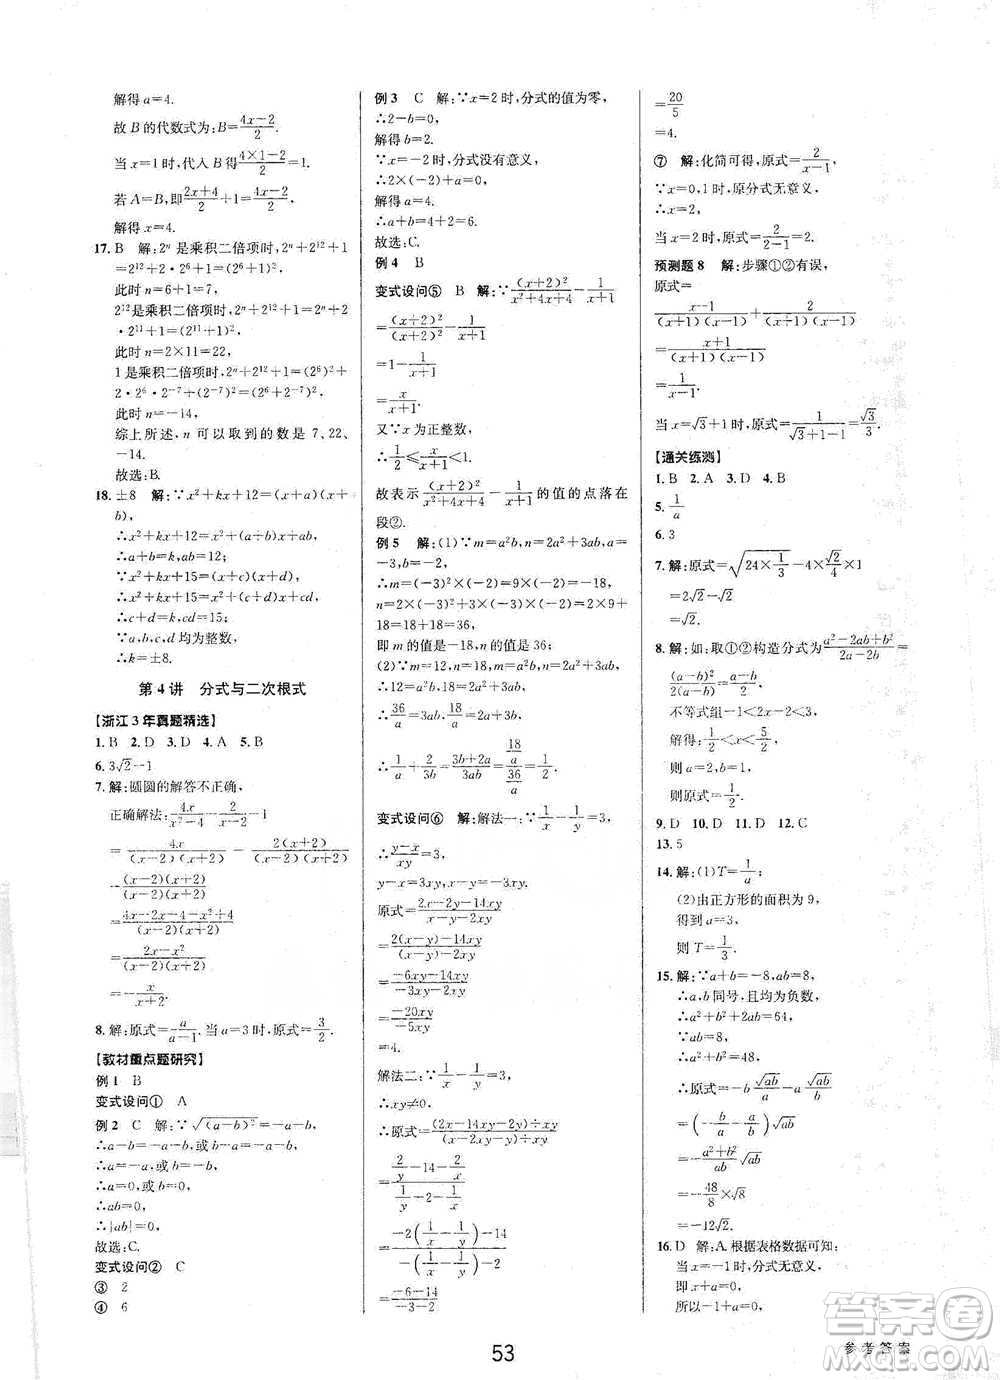 解得 a=4.
故 B 的代数式为:B=\frac{4x-2}{2}.
当 x=1 时,代入 B 得\frac{4×1-2}{2}=1.
若 A=B,即\frac{2x+4}{2}+1=\frac{4x-2}{2}.
解得 x=4.
17. B 解:2ⁿ 是乘积二倍项时,2ⁿ+2¹²+1
=2¹²+2·2⁶+1=(2⁶+1)²,
此时 n=6+1=7,
2¹² 是乘积二倍项时,2ⁿ+2¹²+1=2ⁿ+2
·2¹¹+1=(2¹¹+1)²,
此时 n=2×11=22,
1 是乘积二倍项时,2ⁿ+2¹²+1=(2⁶)²+
2·2⁶·2⁻⁷+(2⁻⁷)²=(2⁶+2⁻⁷)²,
此时 n=-14,
综上所述,n 可以取到的数是 7、22、
-14.
故选:B.
18. ±8 解:∵x²+kx+12=(x+a)(x+
b),
∴x²+kx+12=x²+(a+b)x+ab,
∴a+b=k,ab=12;
∵x²+kx+15=(x+c)(x+d),
∴x²+kx+15=x²+(c+d)x+cd,
∴c+d=k,cd=15;
∵a,b,c,d 均为整数,
∴k=±8.
第 4 讲 分式与二次根式
【浙江 3 年真题精选】
1. B 2. D 3. D 4. A 5. B
6. 3√2-1
7. 解:圆圆的解答不正确,
正确解法:\frac{4x}{x²-4}-\frac{2}{x-2}-1
=\frac{4x}{(x-2)(x+2)}-\frac{2(x+2)}{(x-2)(x+2)}
-\frac{(x-2)(x+2)}{(x-2)(x+2)}
=\frac{4x-2x-4-x²+4}{(x-2)(x+2)}
=\frac{2x-x²}{(x-2)(x+2)}
=-\frac{x}{x+2}.
8. 解:原式=\frac{a}{a-1}.当 a=3 时,原式=\frac{3}{2}.
【教材重点题研究】
例 1 B
变式设问① A
例 2 C 解:∵\sqrt{(a-b)²}=-a-b,
∴a-b=-a-b,或 b-a=-a-b,
∴a=-a,或 b=-b,
∴a=0,或 b=0,
∴ab=0,
∴|ab|=0,
故选:C.
变式设问② C
③ 2
④ 6
例 3 C 解:∵x=2 时,分式的值为零,
∴2-b=0,
解得 b=2.
∵x=-2 时,分式没有意义,
∴2×(-2)+a=0,
解得 a=4.
∴a+b=4+2=6.
故选:C.
例 4 B
变式设问⑤ B 解:∵\frac{(x+2)²}{x²+4x+4}-\frac{1}{x+1}
=\frac{(x+2)²}{(x+2)²}-\frac{1}{x+1}
=1-\frac{1}{x+1}
=\frac{x}{x+1}.
又∵x 为正整数,
∴\frac{1}{2}≤\frac{x}{x+1}<1.
故表示\frac{(x+2)²}{x²+4x+4}-\frac{1}{x+1}的值的点落在
段②.
例 5 解:(1)∵m=a²b,n=2a²+3ab,a=
-3,b=-2,
∴m=(-3)²×(-2)=9×(-2)=-18,
n=2×(-3)²+3×(-3)×(-2)=
18+18=36,
即 m 的值是-18,n 的值是 36;
(2)∵m=a²b,n=2a²+3ab,m=18,n=
36,
∴\frac{36}{a}=3ab,\frac{18}{a}=2a+3b,
∴\frac{1}{a}+\frac{2}{3b}=\frac{3b+2a}{3ab}=\frac{\frac{18}{a}}{\frac{36}{a}}=\frac{1}{2}.
变式设问⑥ 解:解法一:∵\frac{1}{x}-\frac{1}{y}=3,
∴\frac{y-x}{xy}=3,
y-x=3xy,x-y=-3xy.
原式=\frac{2x-2y-14xy}{x-y-2xy}
=\frac{2(x-y)-14xy}{(x-y)-2xy}
=\frac{-6xy-14xy}{-3xy-2xy}
=\frac{-20xy}{-5xy}
=4.
解法二:∵\frac{1}{x}-\frac{1}{y}=3,
∴xy≠0,
∴原式=\frac{(2x-14xy-2y)÷xy}{(x-2xy-y)÷xy}
=\frac{\frac{2}{y}-14-\frac{2}{x}}{\frac{1}{y}-2-\frac{1}{x}}
=\frac{-2(\frac{1}{x}-\frac{1}{y})-14}{-(\frac{1}{x}-\frac{1}{y})-2}
=\frac{-6-14}{-3-2}
=\frac{20}{5}
=4.
⑦ 解:化简可得,原式=\frac{2}{x-1}.
∵x=0,1 时,原分式无意义,
∴x=2,
当 x=2 时,原式=\frac{2}{2-1}=2.
预测题 8 解:步骤①②有误,
原式=
\frac{x-1}{(x+1)(x-1)}+\frac{2}{(x+1)(x-1)}
=\frac{x+1}{(x+1)(x-1)}
=\frac{1}{x-1}.
当 x=√3+1 时,原式=\frac{1}{√3+1-1}=\frac{√3}{3}.
【通关练测】
1. B 2. A 3. D 4. A
5. \frac{1}{a}
6. 3
7. 解:原式=\sqrt{24×\frac{1}{3}}-4×\frac{√2}{4}×1
=2√2-√2
=√2.
8. 解:如:取①②构造分式\frac{a²-2ab+b²}{2a-2b}=
\frac{(a-b)²}{2(a-b)}=\frac{a-b}{2}.
不等式组-1<2x-2<3,
解得:\frac{1}{2}<x<\frac{5}{2}.
则 a=2,b=1,
则原式=\frac{1}{2}.
9. D 10. D 11. D 12. C
13. 5
14. 解:(1)T=\frac{1}{a};
(2)由正方形的面积为 9,
得到 a=3,
则 T=\frac{1}{3}.
15. 解:∵a+b=-8,ab=8,
∴a,b 同号,且均为负数,
∴a²+b²+2ab=64,
∵ab=8,
∴a²+b²=48,
∴原式=-b\frac{\sqrt{ab}}{a}-a\frac{\sqrt{ab}}{b}
=-(\frac{b}{a}+\frac{a}{b})\sqrt{ab}
=-\frac{a²+b²}{ab}\sqrt{ab}
=-\frac{48}{8}×√8
=-12√2.
16. D 解:A.根据表格数据可知:
当 x=-1 时,分式无意义,
即 x+a=0,
所以-1+a=0,
53
参考答案
答案圈
MXQE.COM